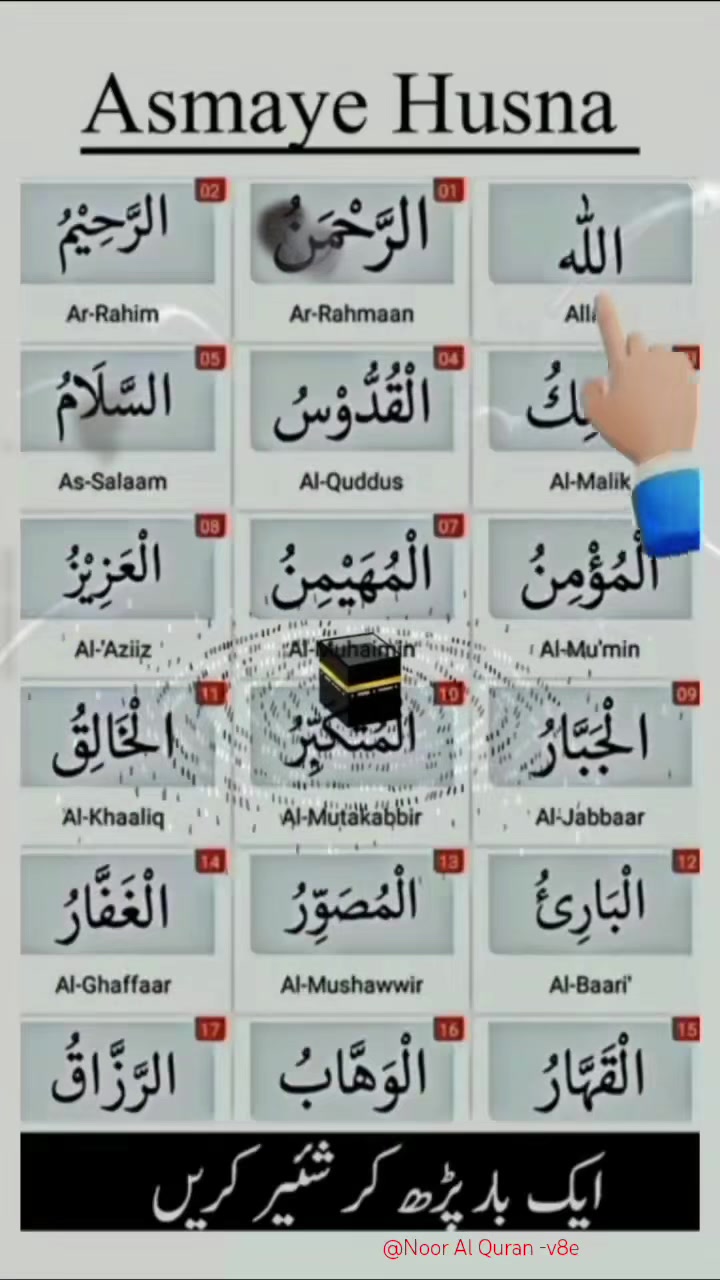 Asmaye Husna
01 02
اللّٰه الرَّحْمَنُ الرَّحِيْمُ
Ar-Rahmaan Ar-Rahim
04 05
الْقُدُّوْسُ السَّلَامُ
Al-Malik Al-Quddus As-Salaam
07 08
الْمُؤْمِنُ الْمُهَيْمِنُ الْعَزِيْزُ
Al-Mu'min Al-Muhaimin Al-'Aziiz
09 10 11
الْجَبَّارُ الْمُتَكَبِّرُ الْخَالِقُ
Al-Jabbaar Al-Mutakabbir Al-Khaaliq
12 13 14
الْبَارِئُ الْمُصَوِّرُ الْغَفَّارُ
Al-Baari' Al-Mushawwir Al-Ghaffaar
15 16 17
الْقَهَّارُ الْوَهَّابُ الرَّزَّاقُ
ایک بار پڑھ کر شئیر کریں
@Noor Al Quran -v8e